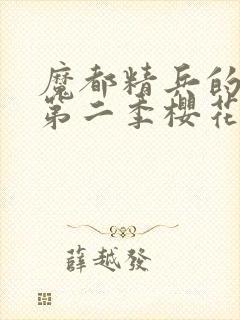 魔都精兵的
第二季櫻花
薛越發